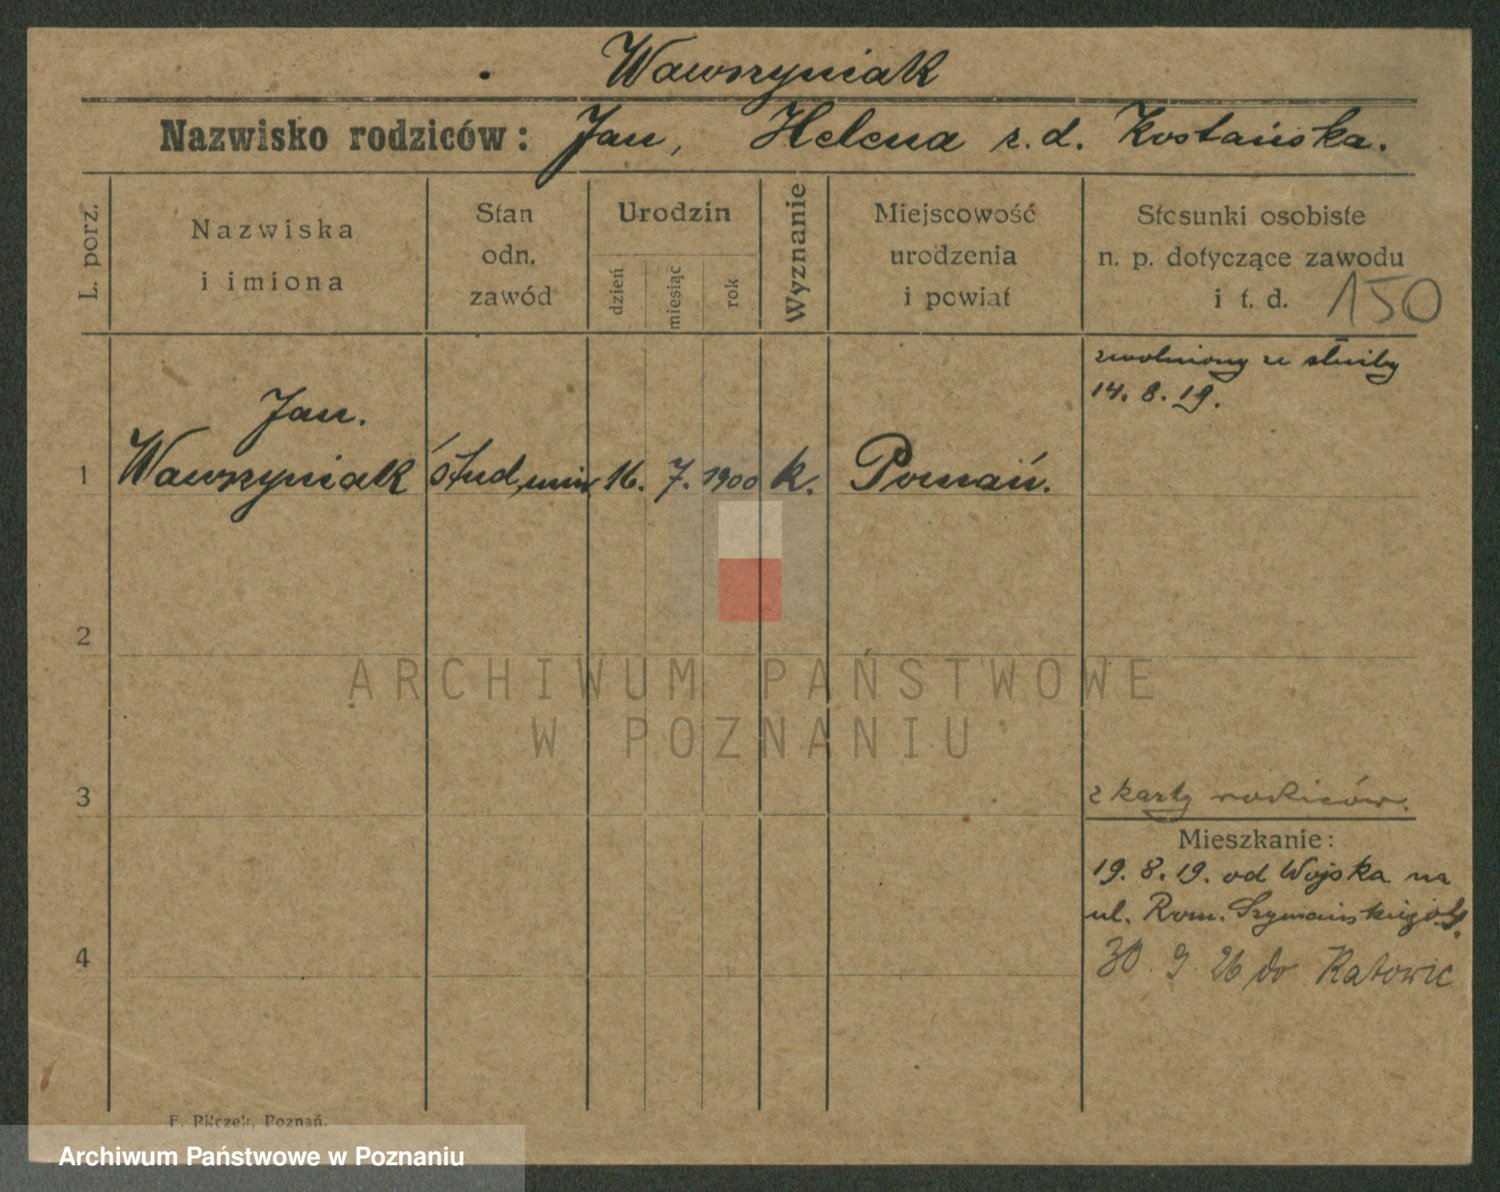 Wawrzyniak
Nazwisko rodziców: Jan, Helena z. d. Kostańska.
L. porz.
Nazwiska
i imiona
Stan
odn.
zawód
Urodzin
dzień
miesiąc
rok
Wyznanie
Miejscowość
urodzenia
i powiat
Stosunki osobiste
n. p. dotyczące zawodu
i t. d. 150
zwolniony ze służby
14. 8. 19.
1 Jan.
Wawrzyniak stud. uniw 16. 7. 1900 k. Poznań.
2
ARCHIWUM PAŃSTWOWE
W POZNANIU
3
z karty rodziców.
Mieszkanie:
19. 8. 19. od Wojska na
ul. Rom. Szymańskiego
4
30 9 26 do Katowic
F. Pilczek, Poznań.
Archiwum Państwowe w Poznaniu